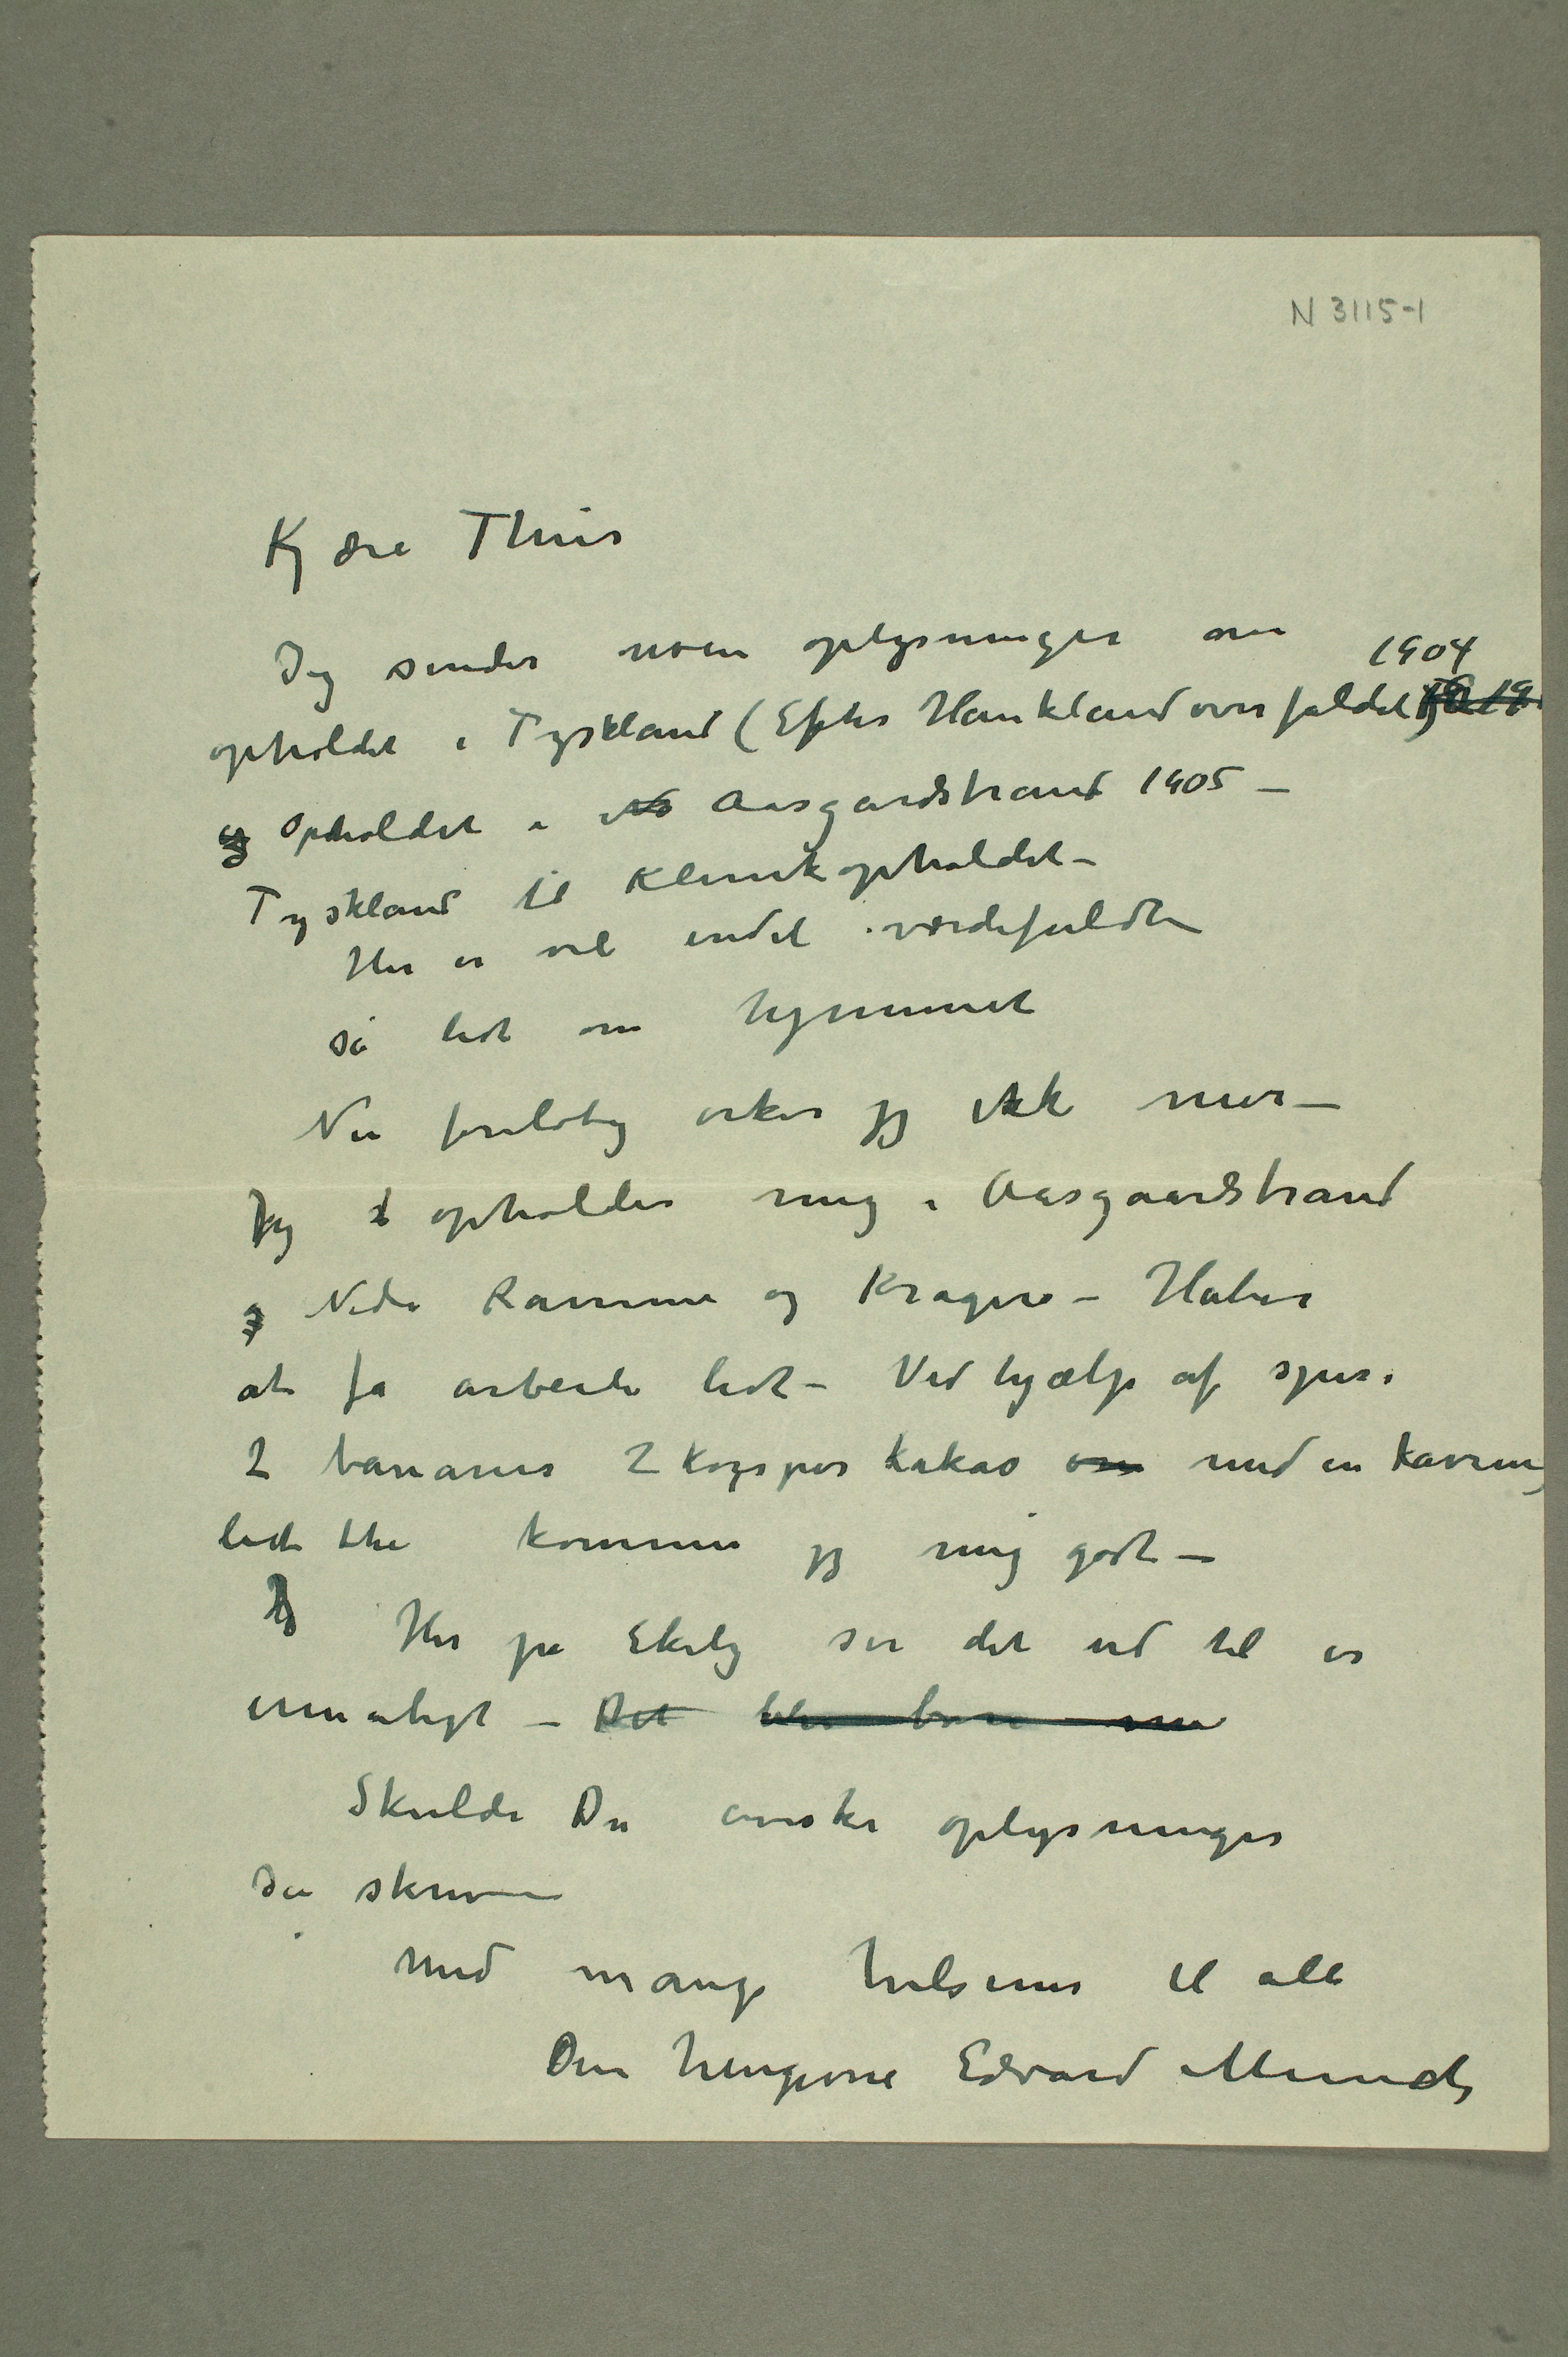 N 3115-1
Kjære Thiis
Jeg sender noen oplysninger om
opholdet i Tyskland (Efter Hauklandoverfaldet) 1904
og Opholdet i Aasgardstrand 1905 –
Tyskland til Klinikopholdet –
Her er vel endel værdifuldt –
så lidt om hjemmet
Nu foreløbig orker jeg ikke mer –
Jeg opholder mig i Aasgaardstrand
og Nedre Ramme og Kragerø – Håber
at få arbeide lidt – Ved hjælp af spise
2 bananer 2 kopper kakao med en kavring
lidt the kommer jeg mig godt –
Her på Ekely ser det ud til
umuligt – Det blir bare
Skulde Du ønske oplysninger
så skriv –
Med mange hilsener til alle
Din hengivne Edvard Munch